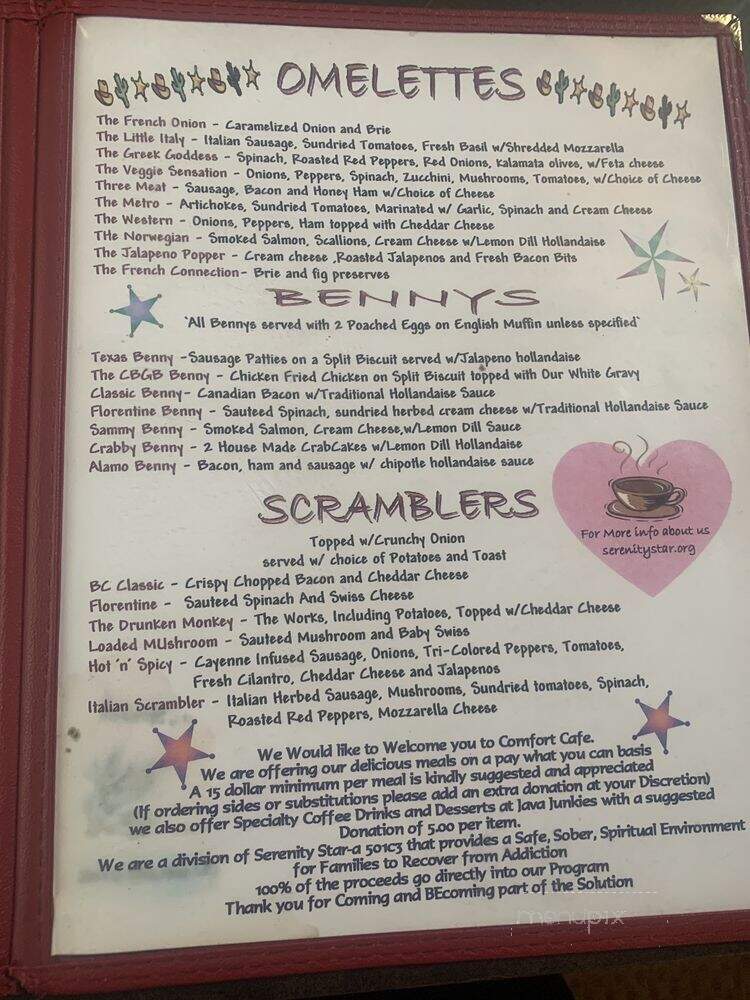 OMELETTES
The French Onion - Caramelized Onion and Brie
The Little Italy - Italian Sausage, Sundried Tomatoes, Fresh Basil w/Shredded Mozzarella
The Greek Goddess - Spinach, Roasted Red Peppers, Red Onions, kalamata olives, w/Feta cheese
The Veggie Sensation - Onions, Peppers, Spinach, Zucchini, Mushrooms, Tomatoes, w/Choice of Cheese
Three Meat - Sausage, Bacon and Honey Ham w/Choice of Cheese
The Metro - Artichokes, Sundried Tomatoes, Marinated w/ Garlic, Spinach and Cream Cheese
The Western - Onions, Peppers, Ham topped with Cheddar Cheese
THe Norwegian - Smoked Salmon, Scallions, Cream Cheese w/Lemon Dill Hollandaise
The Jalapeno Popper - Cream cheese ,Roasted Jalapenos and Fresh Bacon Bits
The French Connection- Brie and fig preserves
BENNYS
*All Bennys served with 2 Poached Eggs on English Muffin unless specified*
Texas Benny -Sausage Patties on a Split Biscuit served w/Jalapeno hollandaise
The CBGB Benny - Chicken Fried Chicken on Split Biscuit topped with Our White Gravy
Classic Benny- Canadian Bacon w/Traditional Hollandaise Sauce
Florentine Benny - Sauteed Spinach, sundried herbed cream cheese w/Traditional Hollandaise Sauce
Sammy Benny - Smoked Salmon, Cream Cheese,w/Lemon Dill Sauce
Crabby Benny - 2 House Made CrabCakes w/Lemon Dill Hollandaise
Alamo Benny - Bacon, ham and sausage w/ chipotle hollandaise sauce
SCRAMBLERS
Topped w/Crunchy Onion
served w/ choice of Potatoes and Toast
For More info about us
serenitystar.org
BC Classic - Crispy Chopped Bacon and Cheddar Cheese
Florentine - Sauteed Spinach And Swiss Cheese
The Drunken Monkey - The Works, Including Potatoes, Topped w/Cheddar Cheese
Loaded MUshroom - Sauteed Mushroom and Baby Swiss
Hot 'n' Spicy - Cayenne Infused Sausage, Onions, Tri-Colored Peppers, Tomatoes,
Fresh Cilantro, Cheddar Cheese and Jalapenos
Italian Scrambler - Italian Herbed Sausage, Mushrooms, Sundried tomatoes, Spinach,
Roasted Red Peppers, Mozzarella Cheese
We Would like to Welcome you to Comfort Cafe.
We are offering our delicious meals on a pay what you can basis
A 15 dollar minimum per meal is kindly suggested and appreciated
(If ordering sides or substitutions please add an extra donation at your Discretion)
we also offer Specialty Coffee Drinks and Desserts at Java Junkies with a suggested
Donation of 5.00 per item.
We are a division of Serenity Star-a 501c3 that provides a Safe, Sober, Spiritual Environment
for Families to Recover from Addiction
100% of the proceeds go directly into our Program
Thank you for Coming and BEcoming part of the Solution
menupix